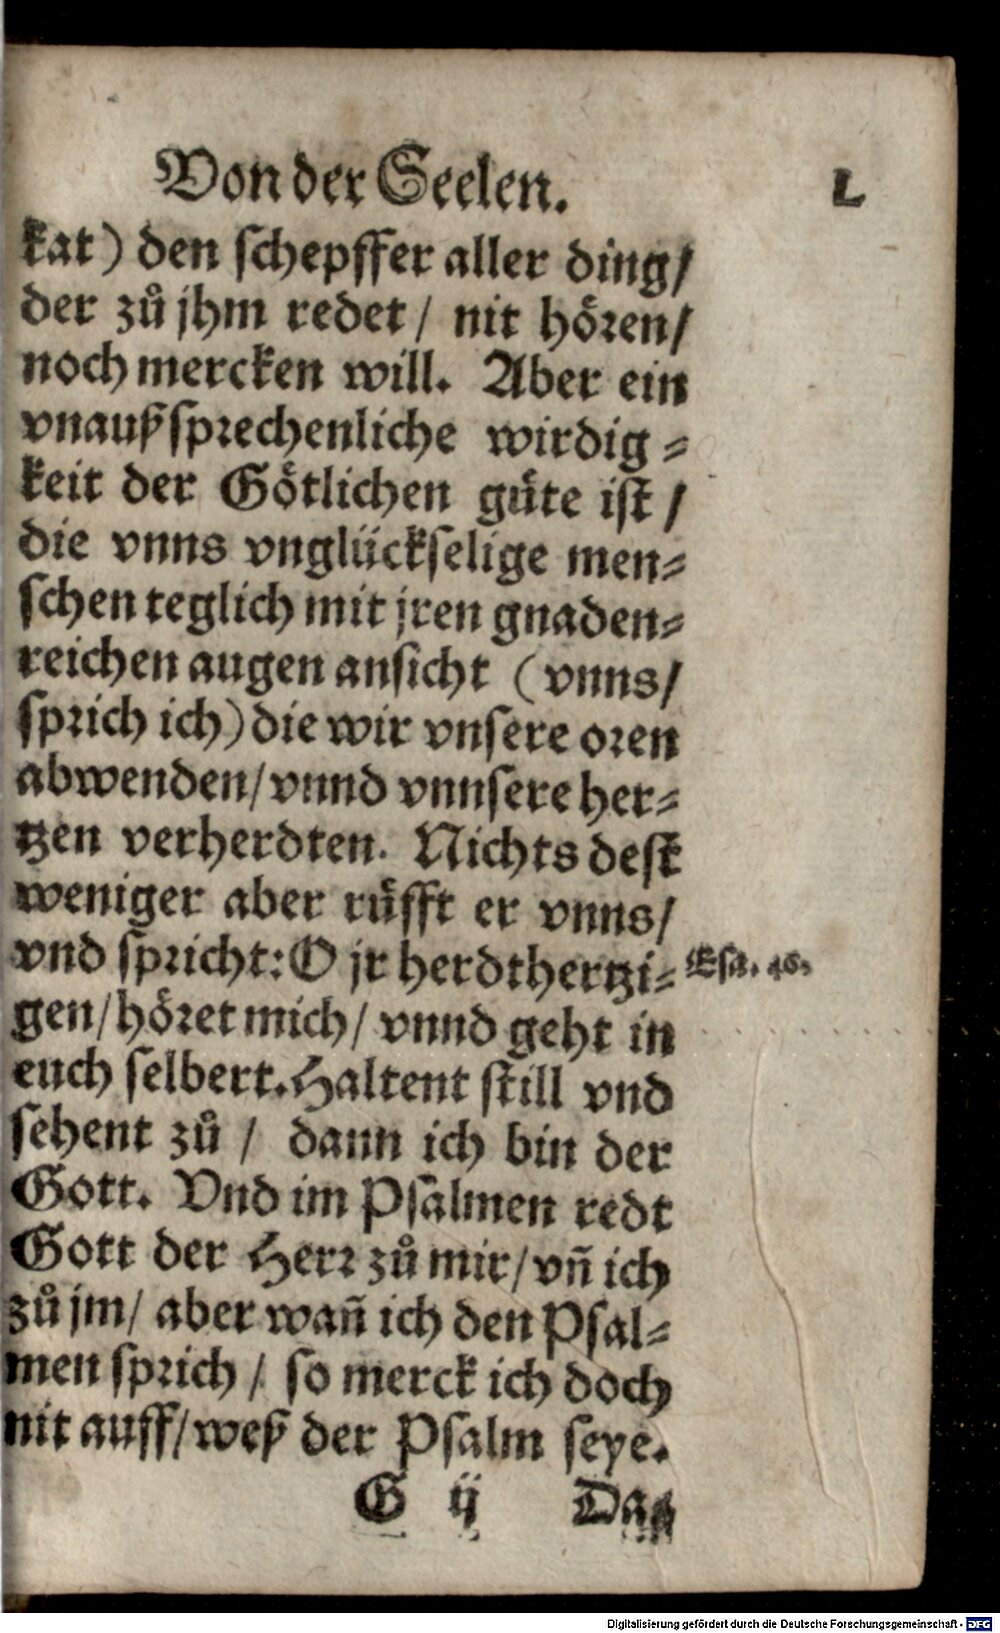 Von der Seelen.
L
kat) den schepffer aller ding/
der zů jhm redet / nit hören/
noch mercken will. Aber ein
vnaußsprechenliche wirdig⸗
keit der Götlichen güte ist /
die vnns vnglückselige men⸗
schen teglich mit jren gnaden⸗
reichen augen ansicht (vnns/
sprich ich) die wir vnsere oren
abwenden/ vnnd vnnsere her⸗
tzen verherdten. Nichts dest
weniger aber rüfft er vnns/
vnd spricht: O jr herdthertzi⸗
Esa. 46.
gen/ höret mich/ vnnd geht in
euch selbert. Haltent still vnd
sehent zů / dann ich bin der
Gott. Vnd im Psalmen redt
Gott der Herr zů mir/ vñ ich
zů jm/ aber wañ ich den Psal⸗
men sprich / so merck ich doch
nit auff/ weß der Psalm seye.
G ij
Digitalisierung gefördert durch die Deutsche Forschungsgemeinschaft - DFG